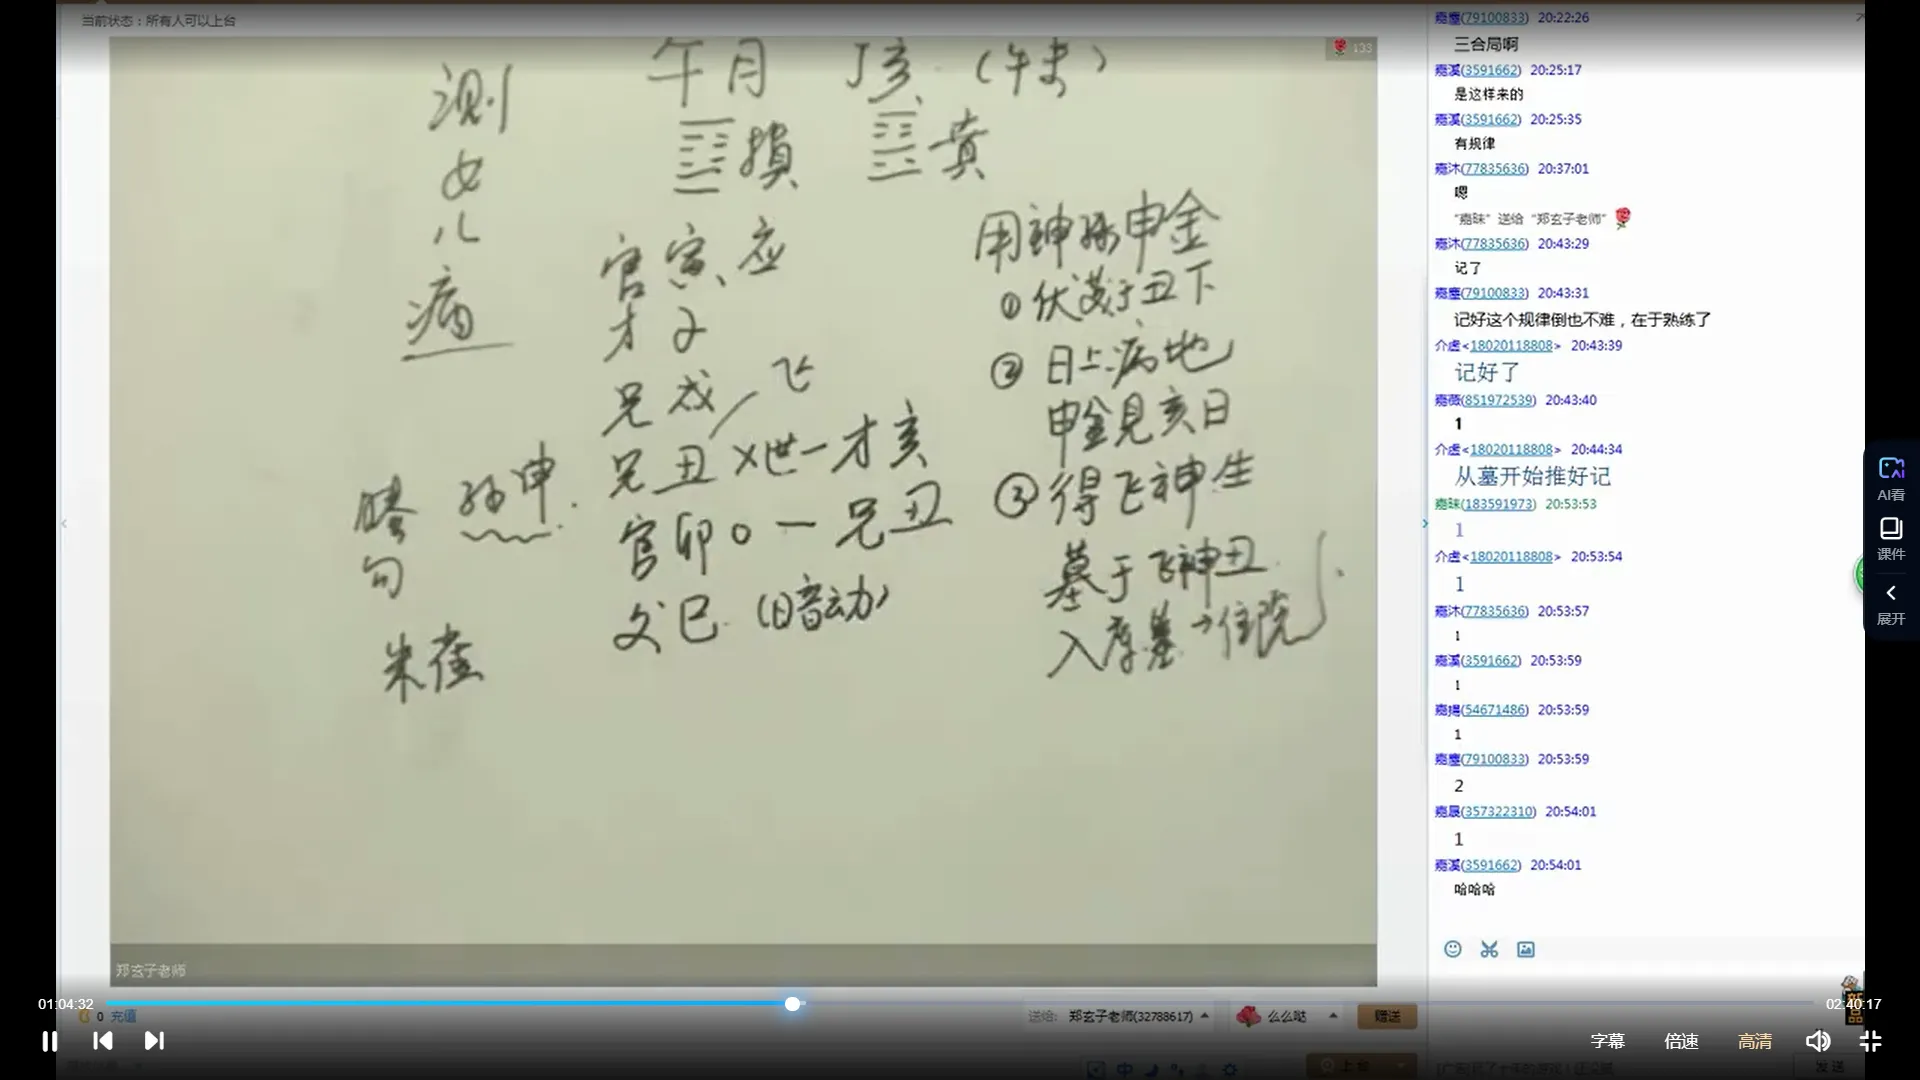 当前状态：所有人可以上台
133
测女儿病
午月 丁亥（午未）
損 贲
官 寅、应
才 子
兄 戌 飞
兄 丑 X世一才亥
官 卯 O 一 兄丑
父 巳（暗动）
螣 孙申
句
朱雀
用神孙申金
① 伏藏于丑下
② 日上病地
申金見亥日
③ 得飞神生
墓于飞神丑
入库墓→住院
郑玄子老师
嘉塵(79100833) 20:22:26
三合局啊
嘉溪(3591662) 20:25:17
是这样来的
嘉溪(3591662) 20:25:35
有规律
嘉沐(77835636) 20:37:01
嗯
"嘉昧" 送给 "郑玄子老师"
嘉沐(77835636) 20:43:29
记了
嘉塵(79100833) 20:43:31
记好这个规律倒也不难，在于熟练了
介虚<18020118808> 20:43:39
记好了
嘉薇(851972539) 20:43:40
1
介虚<18020118808> 20:44:34
从墓开始推好记
嘉昧(183591973) 20:53:53
1
介虚<18020118808> 20:53:54
1
嘉沐(77835636) 20:53:57
1
嘉溪(3591662) 20:53:59
1
嘉揚(54671486) 20:53:59
1
嘉塵(79100833) 20:53:59
2
嘉晟(357322310) 20:54:01
1
嘉溪(3591662) 20:54:01
哈哈哈
AI看
课件
展开
01:04:32
02:40:17
0 充值
送给: 郑玄子老师(32788617)
么么哒
赠送
字幕 倍速 高清
中
发送